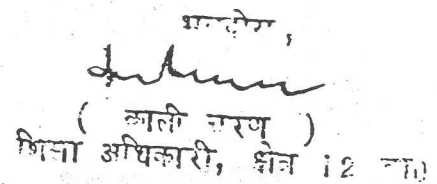 भवदीय,
( काली चरण )
शिक्षा अधिकारी, क्षेत्र 12